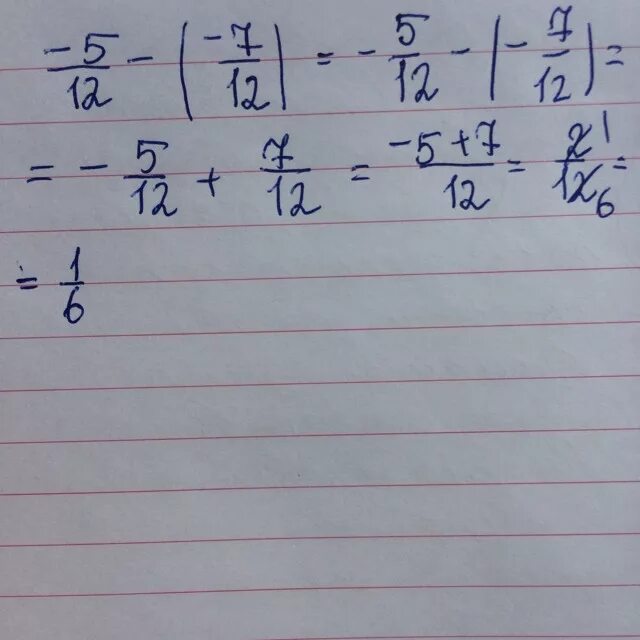 -5/12 - (-7/12) = - 5/12 - (- 7/12) =
= - 5/12 + 7/12 = -5+7/12 = 2 1/12 6 =
= 1/6